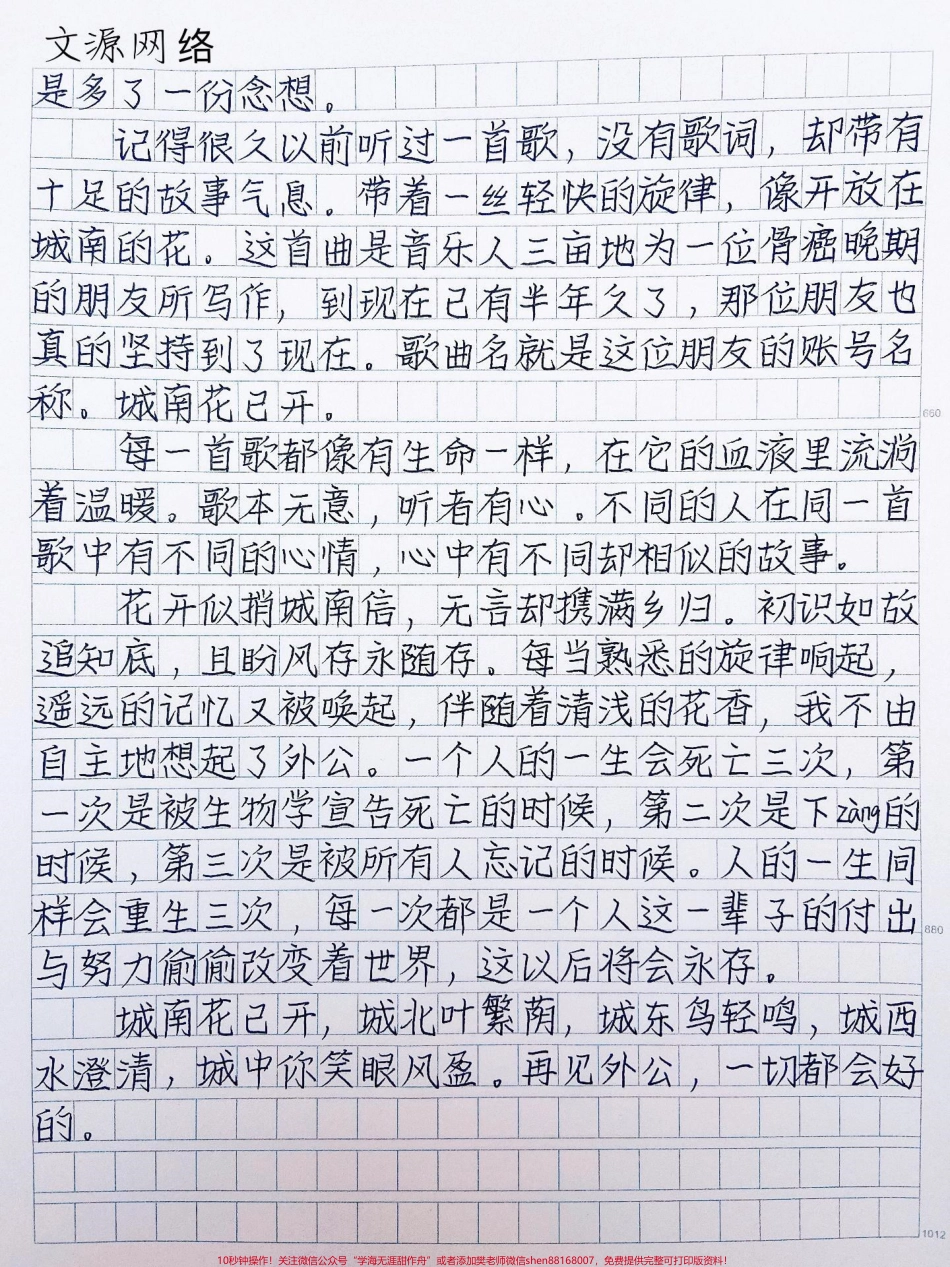 文源网络
是多了一份念想。
记得很久以前听过一首歌，没有歌词，却带有
十足的故事气息。带着一丝轻快的旋律，像开放在
城南的花。这首曲是音乐人三亩地为一位骨癌晚期
的朋友所写作，到现在已有半年久了，那位朋友也
真的坚持到了现在。歌曲名就是这位朋友的账号名
称。城南花已开。
660
每一首歌都像有生命一样，在它的血液里流淌
着温暖。歌本无意，听者有心。不同的人在同一首
歌中有不同的心情，心中有不同却相似的故事。
花开似捎城南信，无言却携满乡归。初识如故
追知底，且盼风存永随存。每当熟悉的旋律响起，
遥远的记忆又被唤起，伴随着清浅的花香，我不由
自主地想起了外公。一个人的一生会死亡三次，第
一次是被生物学宣告死亡的时候，第二次是下zàng的
时候，第三次是被所有人忘记的时候。人的一生同
样会重生三次，每一次都是一个人这一辈子的付出
880
与努力偷偷改变着世界，这以后将会永存。
城南花已开，城北叶繁荫，城东鸟轻鸣，城西
水澄清，城中你笑眼风盈。再见外公，一切都会好
的。
1012
10秒钟操作！关注微信公众号“学海无涯甜作舟”或者添加樊老师微信shen88168007，免费提供完整可打印版资料！